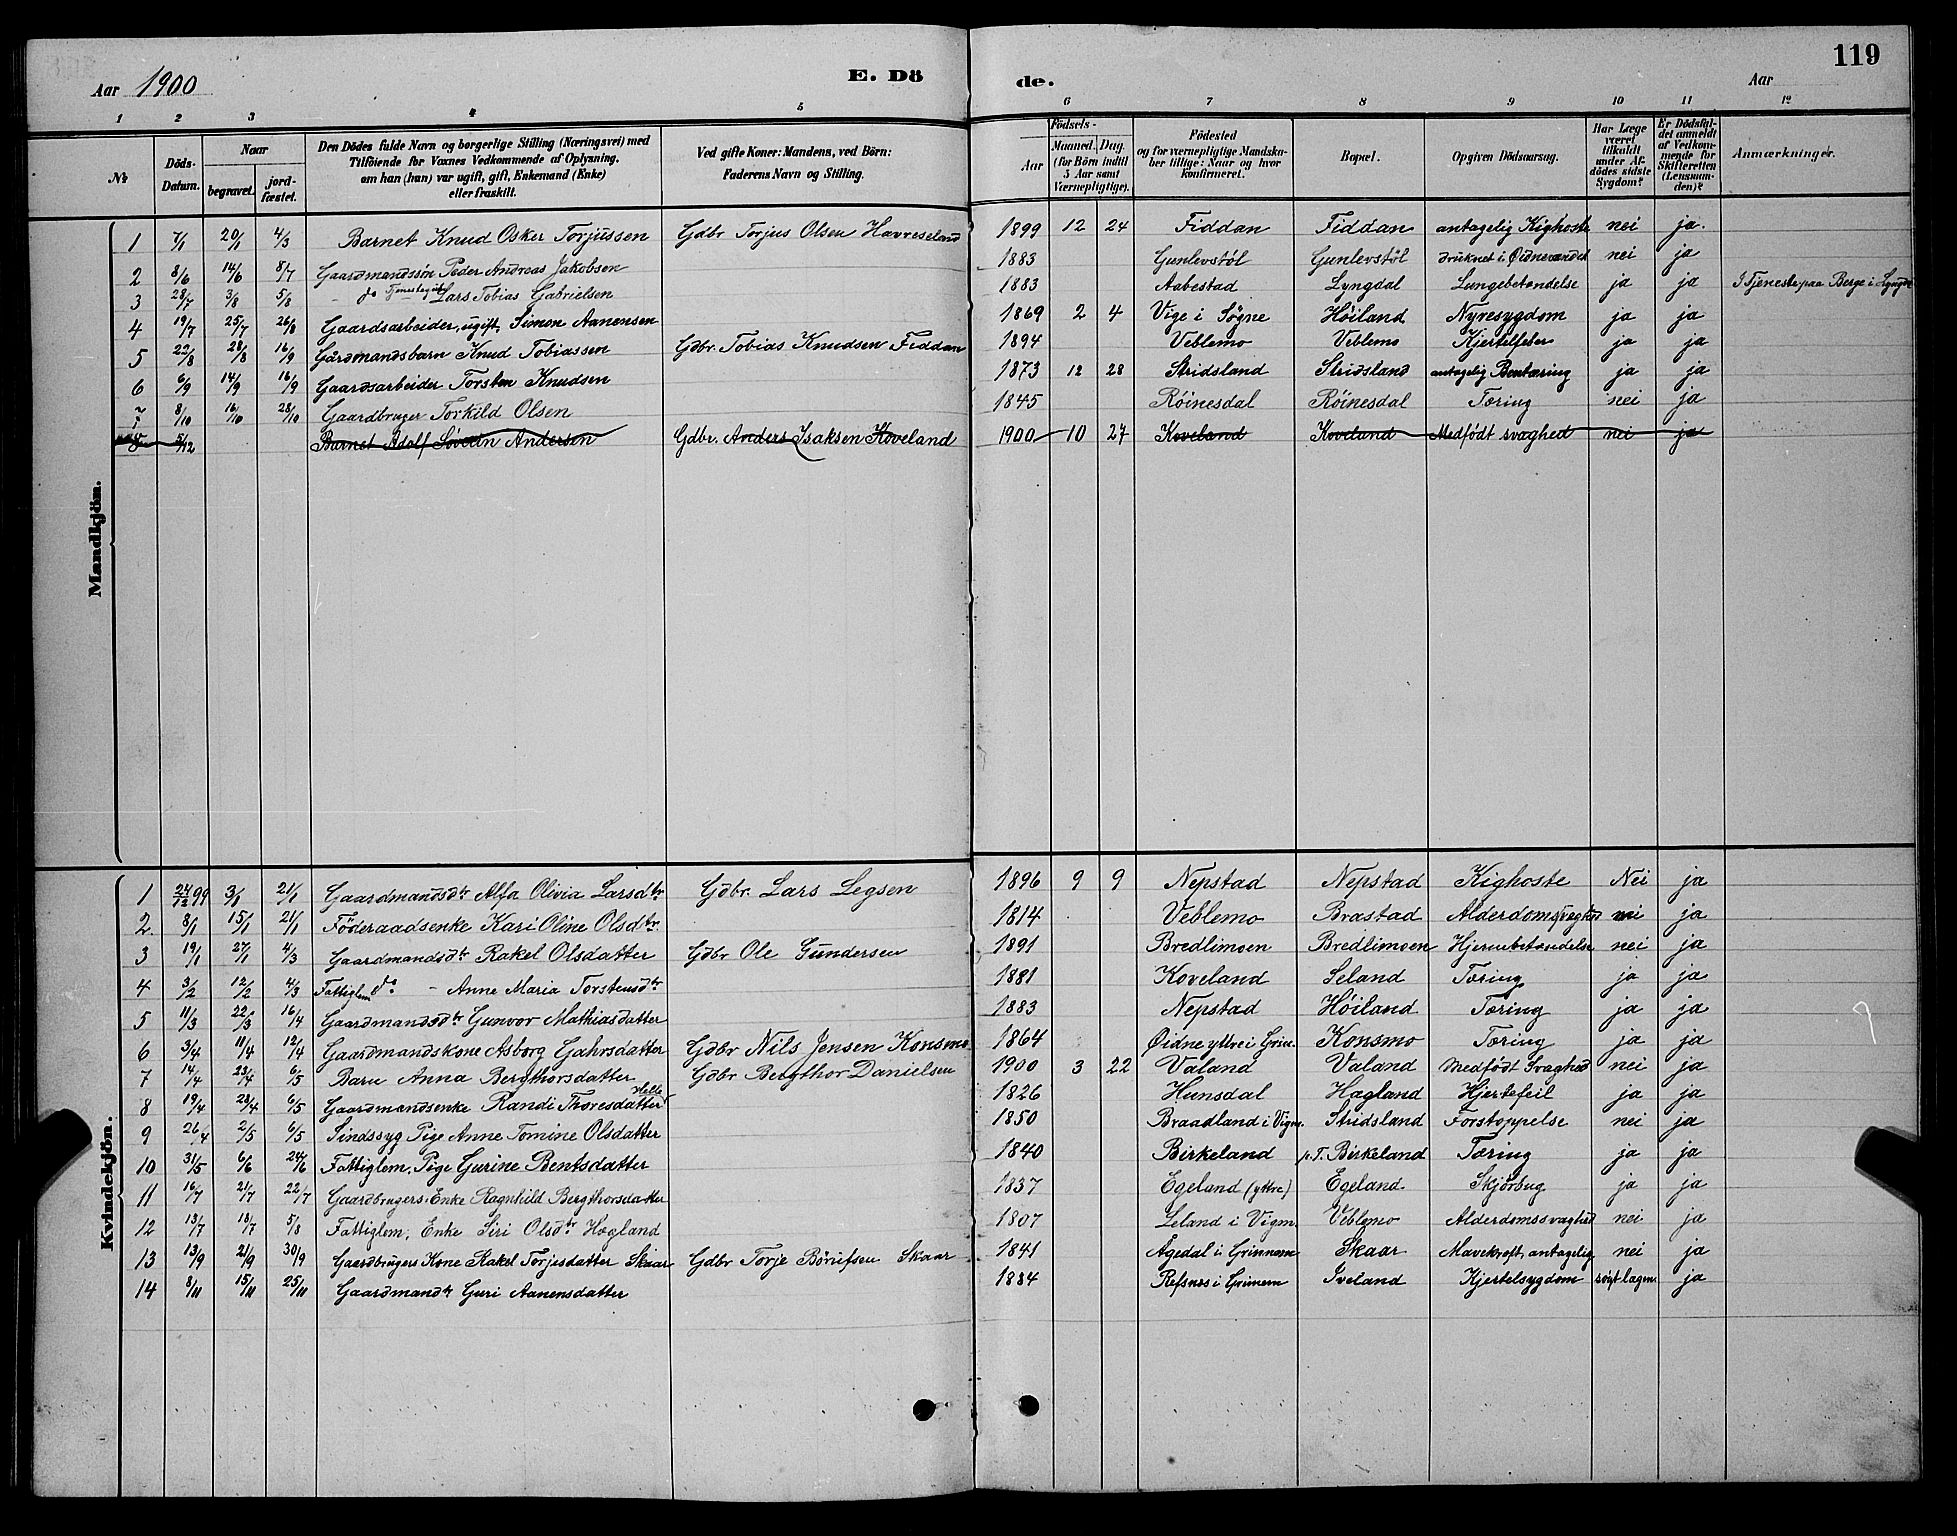 119
Aar 1900
E. Dö
de.
Aar
1 2 3 4 5 6 7 8 9 10 11 12
No
Döds-Datum.
Naar
begravet.
jord-fæstet.
Den Dödes fulde Navn og borgerlige Stilling (Næringsvei) med
Tilföiende for Voxnes Vedkommende af Oplysning,
om han (hun) var ugift, gift, Enkemand (Enke)
eller fraskilt.
Ved gifte Koner: Mandens, ved Börn:
Faderens Navn og Stilling.
Födsels-
Aar
Maaned. Dag.
(for Börn indtil
5 Aar samt
Værnepligtige).
Födested
og for værnepligtige Mandska-
ber tillige: Naar og hvor
konfirmeret.
Bopæl.
Opgiven Dödsaarsag.
Har Læge
været
tilkaldt
under Af-
dödes sidste
Sygdom?
Er Dödsfal-
det anmeldt
af Vedkom-
mende for
Skifteretten
(Lensman-
den)?
Anmærkninger.
Mandkjön.
1 7/1 20/1 4/3 Barnet Knud Osker Torjussen Gdbr Torjus Olsen Havreseland 1899 12 24 Fiddan Fiddan antagelig Kighoste nei ja.
2 8/6 14/6 8/7 Gaardmandssön Peder Andreas Jakobsen 1883 Gunlevstöl Gunlevstöl druknet i Øidnevandet nei ja
3 28/7 3/8 5/8 - do Tjenestegut Lars Tobias Gabrielsen 1883 Aabestad Lyngdal Lungebetændelse ja ja I Tjeneste paa Berge i Lyngd
4 19/7 25/7 26/8 Gaardsarbeider, ugift, Simon Aanensen 1869 2 4 Vige i Søgne Höiland Nyresygdom ja ja
5 22/8 28/8 16/9 Gårdmandsbarn Knud Tobiassen Gdbr. Tobias Knudsen Fiddan 1894 Veblemo Veblemo Kjertelfeber ja ja
6 6/9 14/9 16/9 Gaardsarbeider Torsten Knudsen 1873 12 28 Stridsland Stridsland antagelig Bentæring ja ja
7 8/10 16/10 28/10 Gaardbruger Torkild Olsen 1845 Röinesdal Röinesdal Tæring nei ja
8 5/12 Barnet Adolf Søverin Andersen Gdbr. Anders Isaksen Koveland 1900 10 27 Koveland Koveland Medfödt svaghed nei ja
Kvindekjön.
1 24/12 99 3/1 21/1 Gaardmandsdtr Alfa Olivia Larsdtr Gdbr. Lars Legsen 1896 9 9 Nepstad Nepstad Kighoste Nei ja
2. 8/1 15/1 21/1 Föderaadsenke Kari Oline Olsdtr. 1814 Veblemo Brastad Alderdomssvaghed nei ja
3 19/1 27/1 4/3 Gaardmandsdtr Rakel Olsdatter Gdbr Ole Gundersen 1891 Bredlimoen Bredlimoen Hjernebetændelse nei ja
4 3/2 12/2 4/3 Fattiglem do - Anne Maria Torstensdtr 1881 Koveland Seland Tæring ja ja
5 11/3 22/3 16/4 Gaardmandsdtr Gunvor Mathiasdatter 1883 Nepstad Höiland Tæring ja ja
6 3/4 11/4 12/4 Gaardmandskone Asborg Gahrsdatter Gdbr Nils Jensen Konsmo 1864 Øidne yttre i Grin. Konsmo Tæring ja ja
7 14/4 23/4 6/5 Barn Anna Bergthorsdatter Gdbr Bergthor Danielsen 1900 3 22 Valand Valand Medfödt Svaghed nei ja
8 19/4 28/4 6/5 Gaardmandsenke Randi Thoresdatter Helle 1826 Hunsdal Hagland Hjertefeil ja ja
9 26/4 2/5 6/5 Sindssyg Pige Anne Tomine Olsdatter 1850 Braadland i Vigm. Stridsland Forstoppelse nei ja
10 31/5 6/6 24/6 Fattiglem, Pige Gurine Bentsdatter 1840 Birkeland p. T. Birkeland Tæring ja ja
11 16/7 21/7 22/7 Gaardbrugers Enke Ragnhild Bergthorsdatter 1837 Egeland (yttre) Egeland Skjörbug ja ja
12 13/7 18/7 5/8 Fattiglem, Enke Siri Olsdtr Hogland 1807 Leland i Vigm. Veblemo Alderdomssvaghed nei ja
13 13/9 21/9 30/9 Gaardbrugers Kone Rakel Torjusdatter Skaar Gdbr Torje Börufsen Skaar 1841 Agedal i Grinnem Skaar Mavekræft, antagelig nei ja
14 8/11 15/11 25/11 Gaardmandsdtr Guri Aanensdatter 1884 Refsnes i Grinem Iveland Kjertelsygdom ja